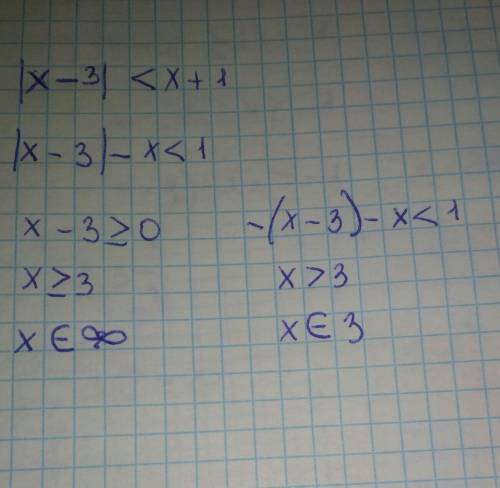 |x-3| < x+1
|x-3| - x < 1
x - 3 ≥ 0
x ≥ 3
x ∈ ∞
-(x-3) - x < 1
x > 3
x ∈ 3